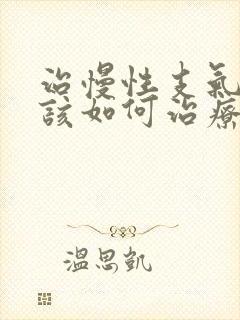 治慢性支氣
該如何治療
溫思凱